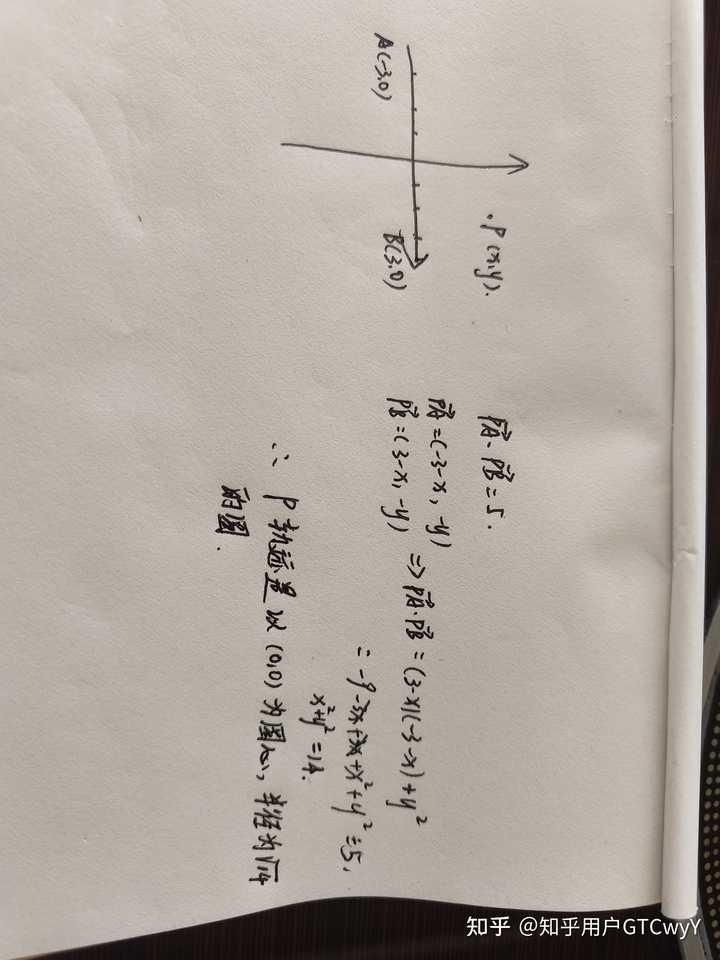 A(-3,0)
B(3,0)
.P(x,y).
PA⃗·PB⃗=5.
PA⃗=(-3-x,-y)
PB⃗=(3-x,-y) => PA⃗·PB⃗=(3-x)(-3-x)+y²
∴-9-3x+3x+x²+y²=5,
x²+y²=14.
∴ P轨迹是以(0,0)为圆心,半径为√14
的圆.
知乎 @知乎用户GTCwyY